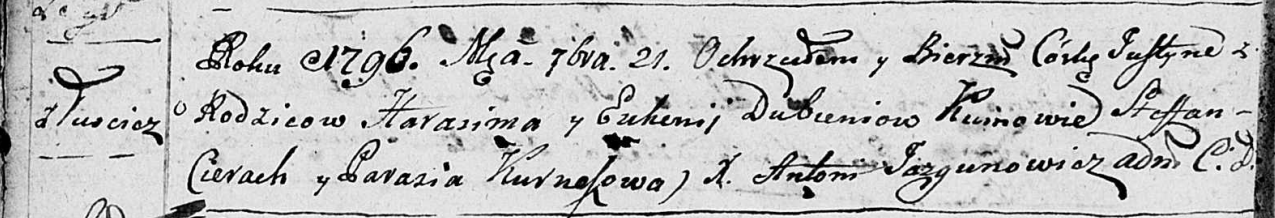 z Łuscicz
Roku 1796. Mca 7bra. 21. Ochrzciłem y Bierzm Córkę Justynę z
Rodzicow Harasima y Euhenij Dubieniow Kumowie) Steffan
Cierach y Parasia Kurnesowa) X. Antoni Jazgunowicz adm C. D.